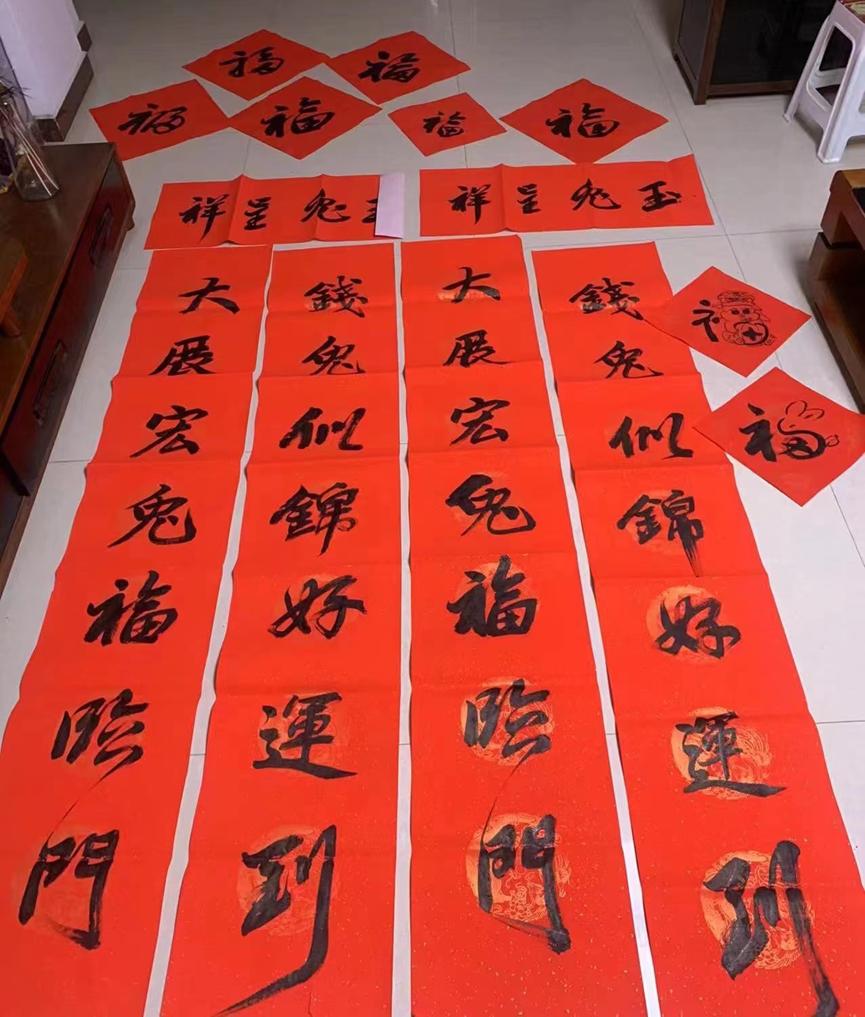 福
福
福
福
福
福
玉兔呈祥
玉兔呈祥
錢兔似錦好運到
大展宏兔福臨門
錢兔似錦好運到
大展宏兔福臨門
福
福